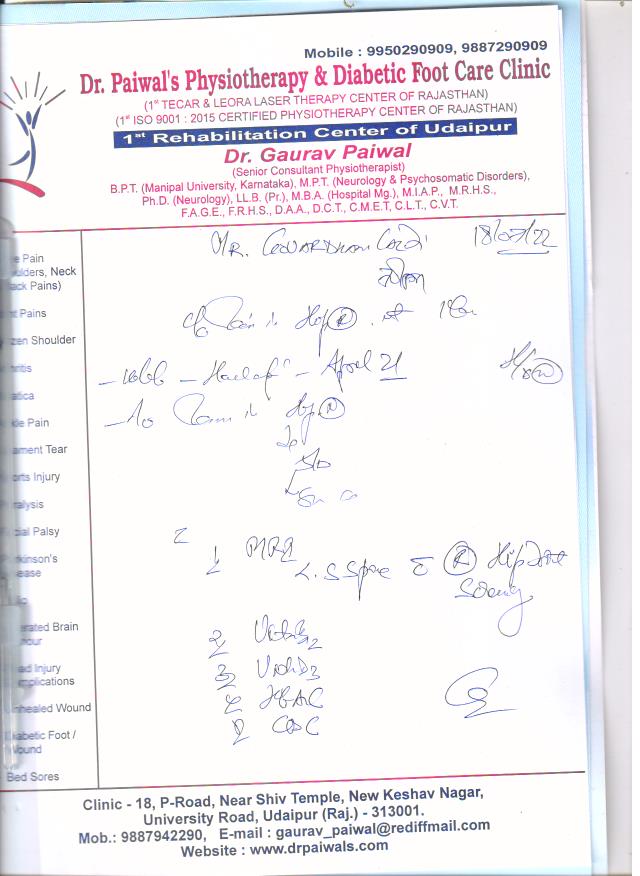 Mobile : 9950290909, 9887290909
Dr. Paiwal's Physiotherapy & Diabetic Foot Care Clinic
(1st TECAR & LEORA LASER THERAPY CENTER OF RAJASTHAN)
(1st ISO 9001 : 2015 CERTIFIED PHYSIOTHERAPY CENTER OF RAJASTHAN)
1st Rehabilitation Center of Udaipur
Dr. Gaurav Paiwal
(Senior Consultant Physiotherapist)
B.P.T. (Manipal University, Karnataka), M.P.T. (Neurology & Psychosomatic Disorders),
Ph.D. (Neurology), LL.B. (Pr.), M.B.A. (Hospital Mg.), M.I.A.P., M.R.H.S.,
F.A.G.E., F.R.H.S., D.A.A., D.C.T., C.M.E.T, C.L.T., C.V.T.
Mr.
e Pain
ulders, Neck
ack Pains)
Pains
zen Shoulder
tica
Pain
ament Tear
orts Injury
ralysis
ial Palsy
kinson's
ease
rated Brain
our
Injury
mplications
nhealed Wound
iabetic Foot /
Wound
Bed Sores
C/o Pain in Hip R
April 21
Pain in Hip R
1 MRI L.S Spine R Hip Joint
2 Vit B12
3 Vit D3
CBC
Clinic - 18, P-Road, Near Shiv Temple, New Keshav Nagar,
University Road, Udaipur (Raj.) - 313001.
Mob.: 9887942290, E-mail : gaurav_paiwal@rediffmail.com
Website : www.drpaiwals.com